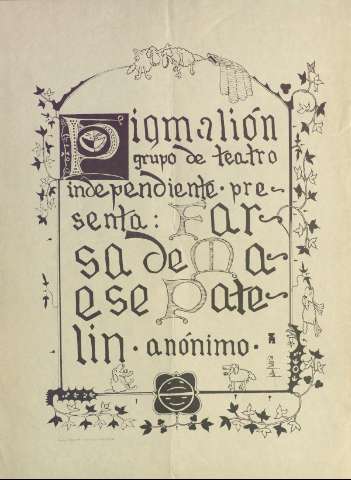 Pigmalión
grupo de teatro
independiente · pre-
senta: Far-
sa de Ma-
ese Pate-
lin · anónimo ·